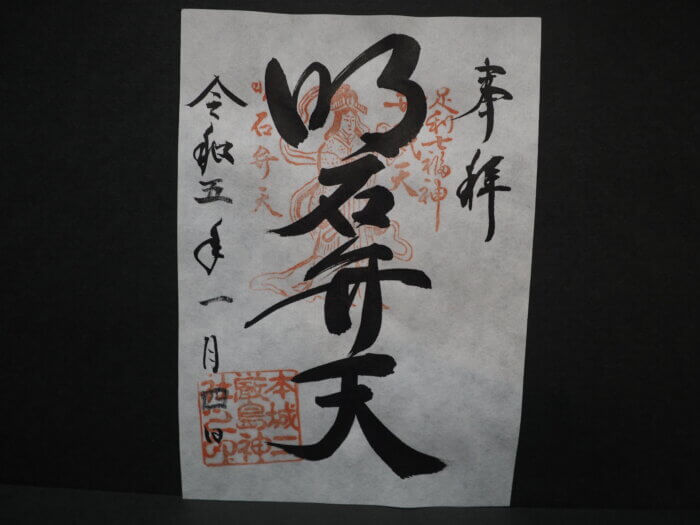 奉拝
足利七福神
天
明石弁天
明石弁天
令和五年一月四日
本城三
厳島神
社之印